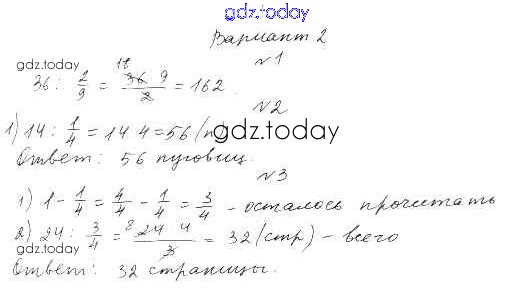 gdz.today
Вариант 2
gdz.today
№1
36 : 2/9 = 36 · 9 / 2 = 162.
18
№2
1) 14 : 1/4 = 14 · 4 = 56 (п)
gdz.today
Ответ: 56 пуговиц.
№3
1) 1 - 1/4 = 4/4 - 1/4 = 3/4 - осталось прочитать
2) 24 : 3/4 = 24 · 4 / 3 = 32 (стр) - всего
8
gdz.today
Ответ: 32 страницы.